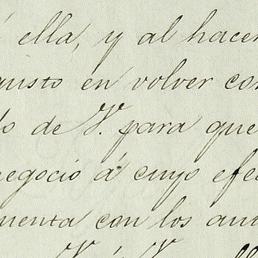 ella, y al hacer
gusto en volver con
de V. para que
negocio á cuyo efec
cuenta con los